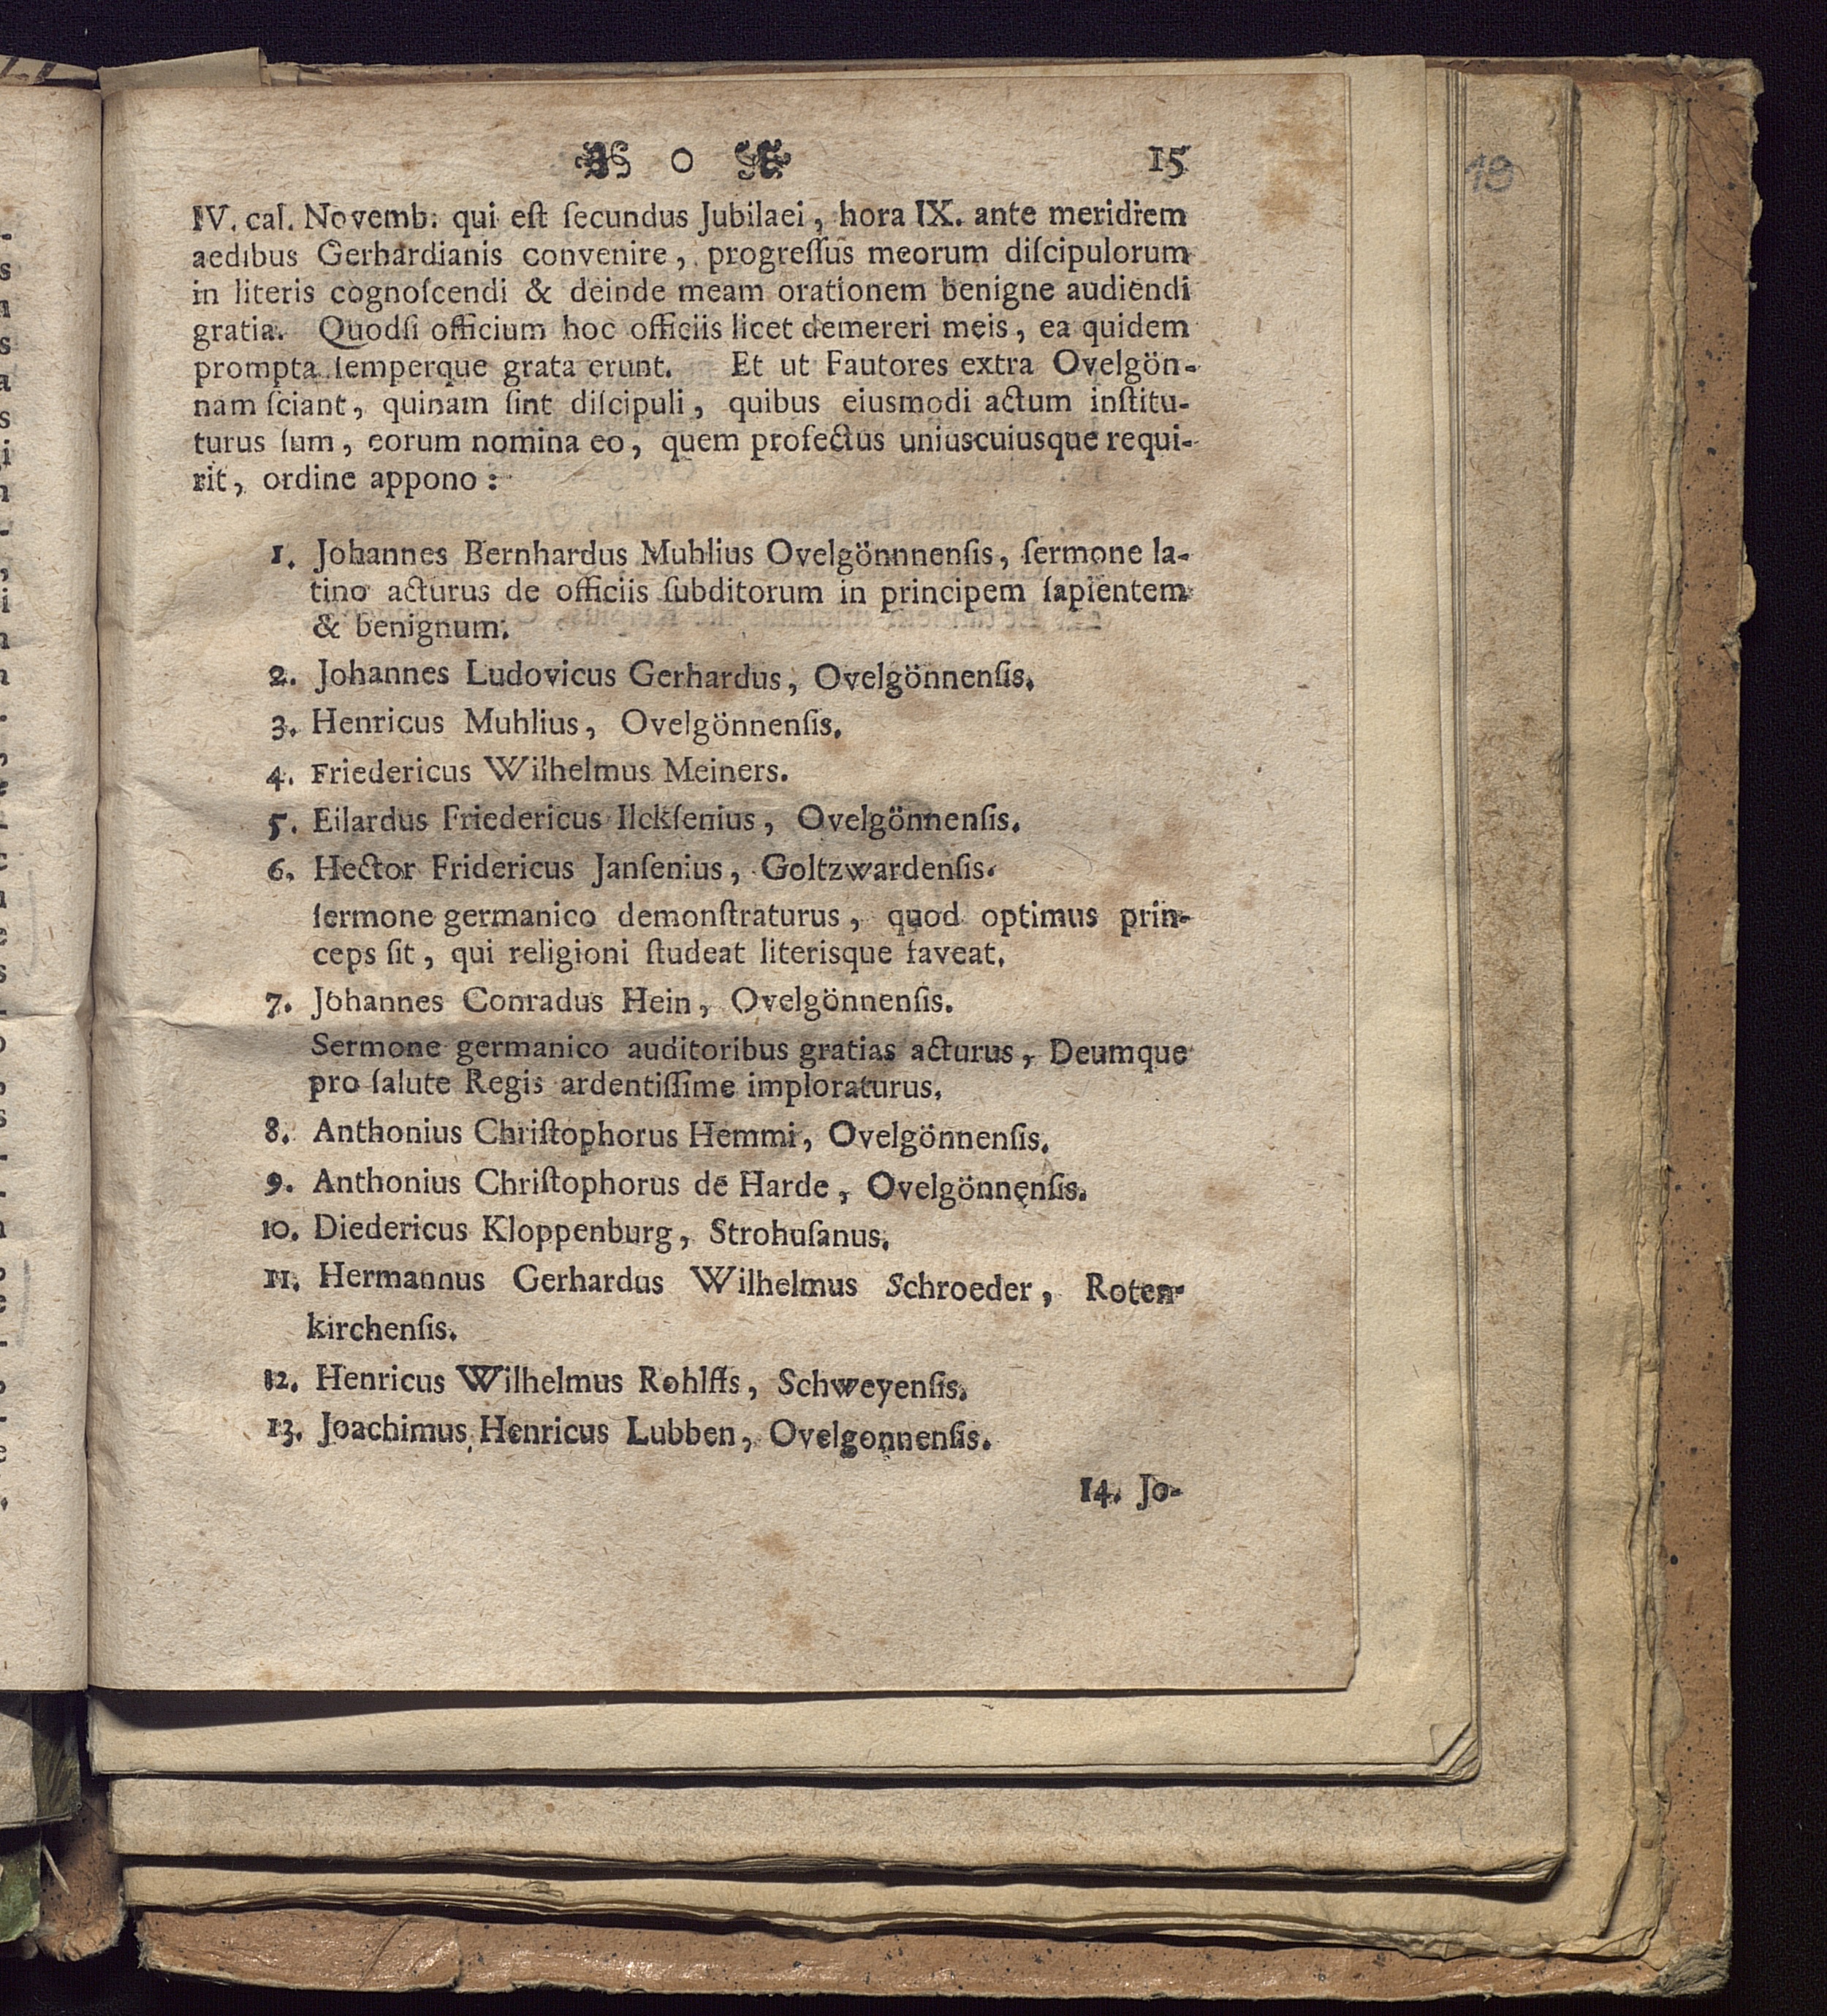 0 15
18
IV. cal. Novemb. qui eſt ſecundus Jubilaei, hora IX. ante meridiem
aedibus Gerhardianis convenire, progreſſus meorum diſcipulorum
in literis cognoſcendi & deinde meam orationem benigne audiendi
gratia. Quodſi officium hoc officiis licet demereri meis, ea quidem
prompta ſemperque grata erunt. Et ut Fautores extra Ovelgön-
nam ſciant, quinam ſint diſcipuli, quibus eiusmodi actum inſtitu-
turus ſum, eorum nomina eo, quem profectus uniuscuiusque requi-
rit, ordine appono:
1. Johannes Bernhardus Muhlius Ovelgönnnenſis, ſermone la-
tino acturus de officiis ſubditorum in principem ſapientem
& benignum.
2. Johannes Ludovicus Gerhardus, Ovelgönnenſis.
3. Henricus Muhlius, Ovelgönnenſis.
4. Friedericus Wilhelmus Meiners.
5. Eilardus Friedericus Ilckſenius, Ovelgönnenſis.
6. Hector Fridericus Janſenius, Goltzwardenſis.
ſermone germanico demonſtraturus, quod optimus prin-
ceps ſit, qui religioni ſtudeat literisque faveat.
7. Johannes Conradus Hein, Ovelgönnenſis.
Sermone germanico auditoribus gratias acturus, Deumque
pro ſalute Regis ardentiſſime imploraturus.
8. Anthonius Chriſtophorus Hemmi, Ovelgönnenſis.
9. Anthonius Chriſtophorus de Harde, Ovelgönnenſis.
10. Diedericus Kloppenburg, Strohuſanus.
11. Hermannus Gerhardus Wilhelmus Schroeder, Roten-
kirchenſis.
12. Henricus Wilhelmus Rohlffs, Schweyenſis.
13. Joachimus Henricus Lubben, Ovelgonnenſis.
14. Jo-